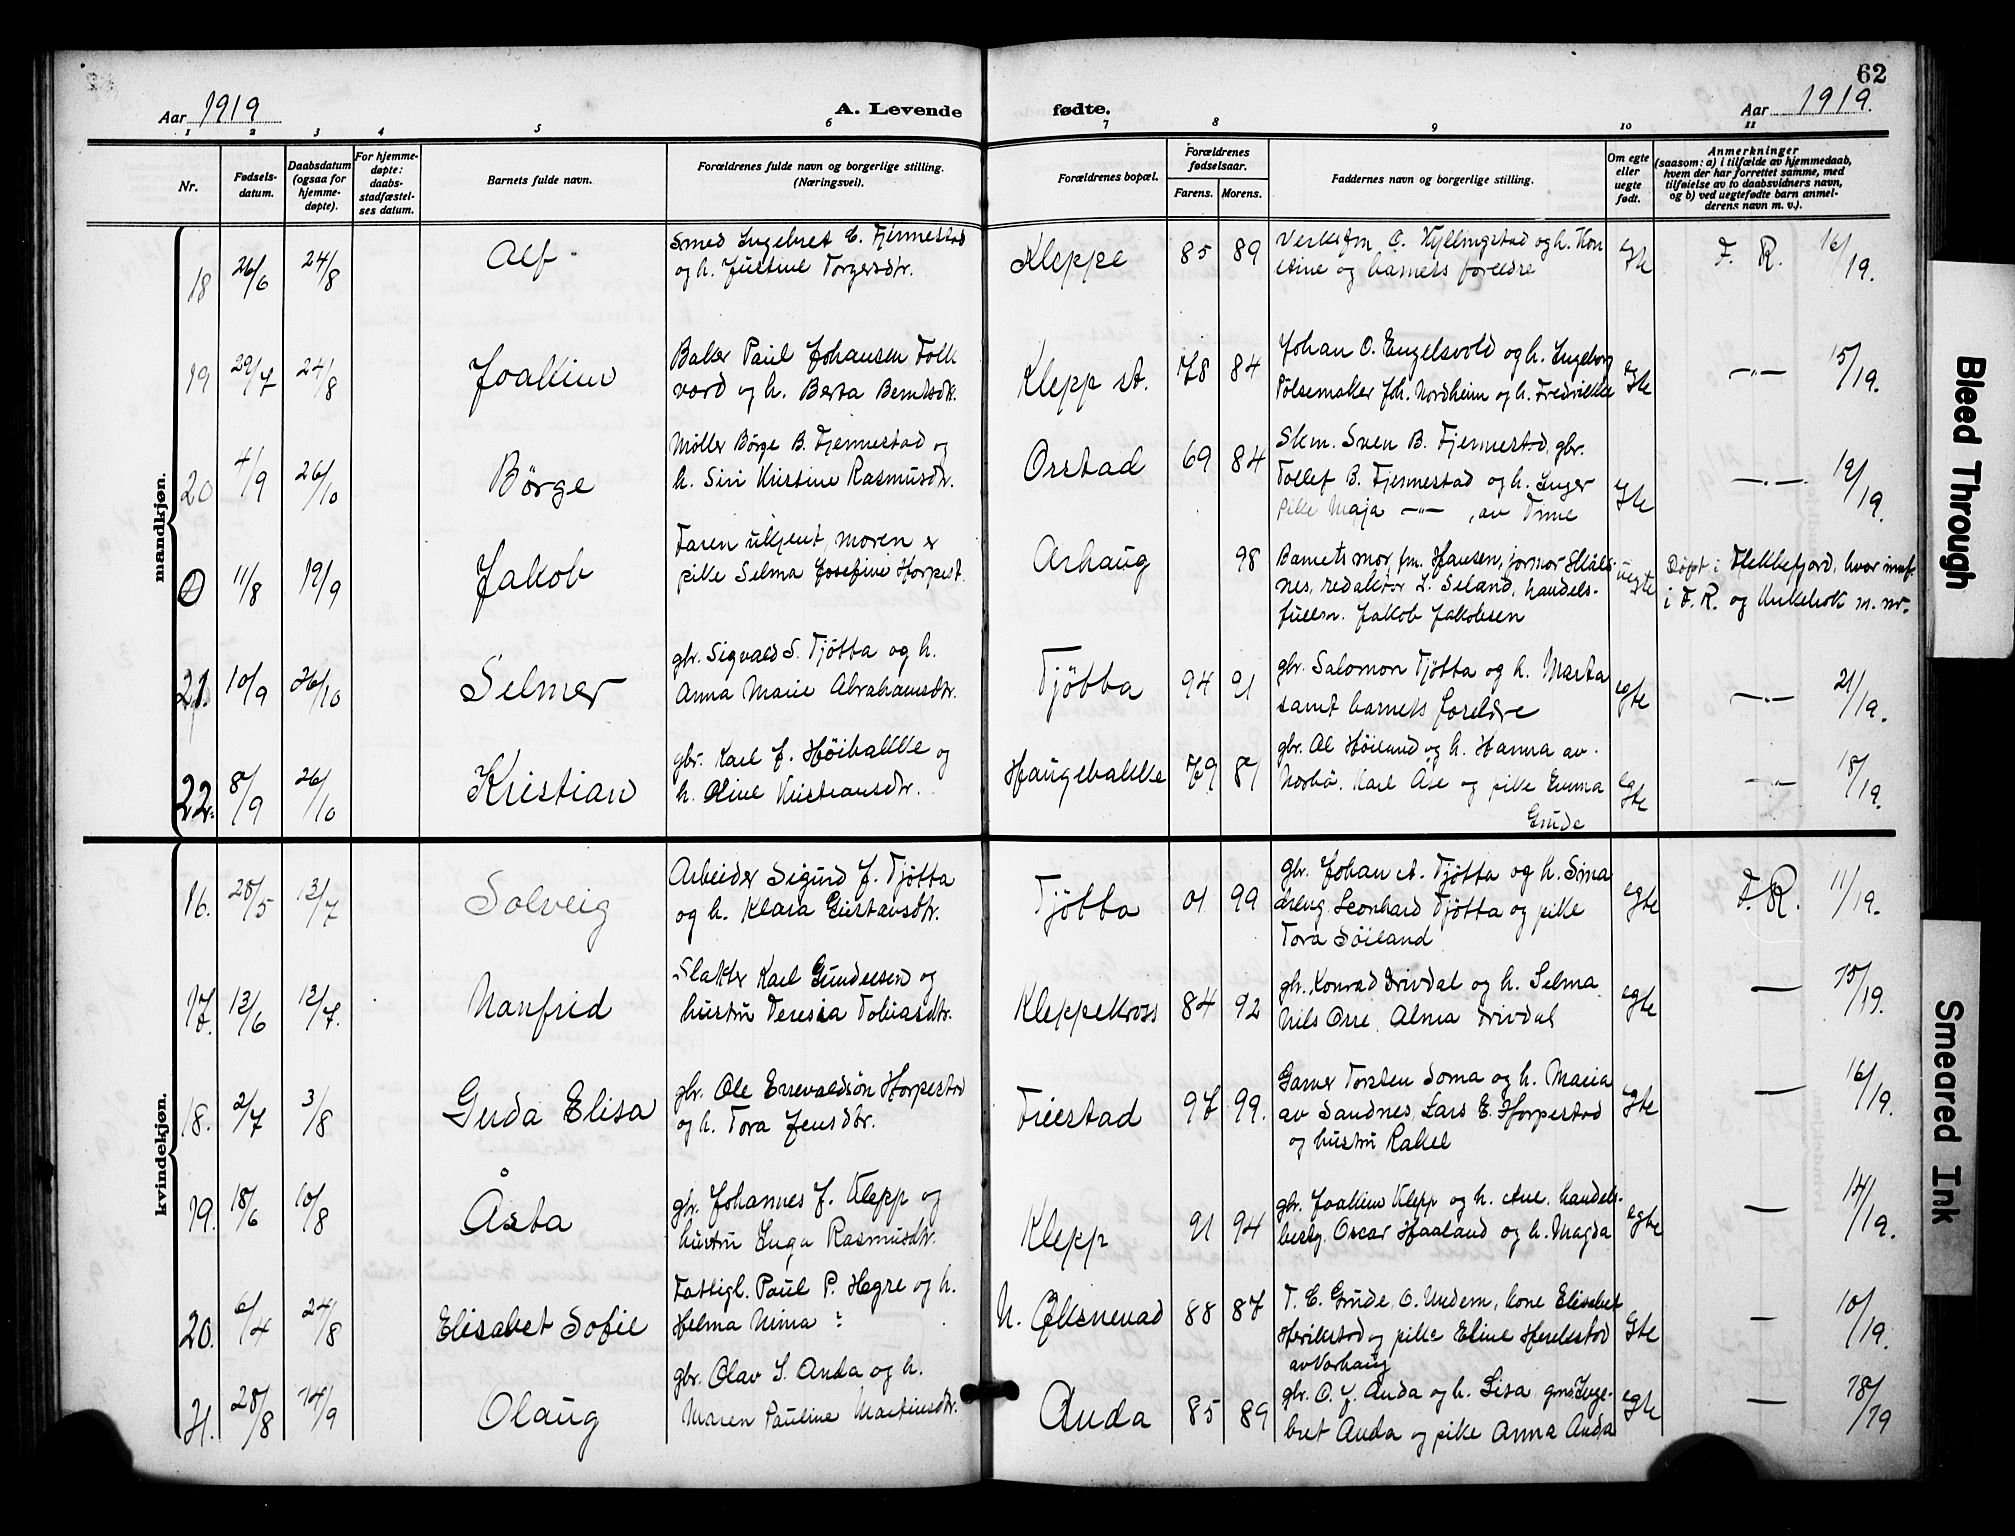 62
Aar 1919
A. Levende fødte.
Aar 1919.
1 2 3 4 5 6 7 8 9 10 11
Nr.
Fødsels-
datum.
Daabsdatum
(ogsaa for
hjemme-
døpte).
For hjemme-
døpte:
daabs-
stadfæstel-
ses datum.
Barnets fulde navn.
Forældrenes fulde navn og borgerlige stilling.
(Næringsvei).
Forældrenes bopæl.
Forældrenes
fødselsaar.
Farens. Morens.
Faddernes navn og borgerlige stilling.
Om egte
eller
uegte
født.
Anmerkninger
(saasom: a) i tilfælde av hjemmedaab,
hvem der har forrettet samme, med
tilføielse av to daabsvidners navn,
og b) ved uegtefødte barn anmel-
derens navn m. v.).
mandkjøn.
18 26/6 24/8 Alf
Smed Ingebret E. Fjermestad
og h. Justine Torgersdtr.
Kleppe 85 89
Verksfm O. Kyllingstad og h. Kon
stine og barnets forældre
Gte F. R. 16/19.
19 29/7 24/8 Joakim
Baker Paul Johansen Folk
vord og h. Berta Berntsdtr.
Klepp st. 78 84
Johan O. Engelsvold og h. Ingeborg
Pølsemaker Joh. Nordheim og h. Fredrikke
Gte —"— 15/19.
20 4/9 26/10 Børge
Møller Børge B. Fjermestad og
h. Siri Kristine Rasmusdtr.
Orstad 69 84
Skm. Sven B. Fjermestad, gbr.
Tollef B. Fjermestad og h. Inger
pike Maja —"— , av Time
Gte —"— 19/19.
0 11/8 19/9 Jakob
Faren ukjent, moren er
pike Selma Josefine Horpest.
Arhaug 98
Barnets mor, fm. Hansen, jormor
nes, redaktør L. Seland, handels-
fuldm. Jakob Jakobsen
uegte
Døpt i Flekkefjord, hvor innf.
i F. R. og Kirkebok m. nr.
21. 10/9 26/10 Selmer
gbr. Sigvald S. Tjøtta og h.
Anna Marie Abrahamsdtr.
Tjøtta 94 91
gbr. Salomon Tjøtta og h. Marta
samt barnets foreldre
egte —"— 21/19.
22. 8/9 26/10 Kristian
gbr. Karl J. Høibakke og
h. Oline Kristiansdtr.
Haugebakke 79 87
gbr. Al Høiland og h. Hanna av
Nærbø. Karl Åse og pike Emma
Grude
egte —"— 18/19.
kvindekjøn.
16. 28/5 13/7 Solveig
Arbeider Sigurd J. Tjøtta
og h. Klara Gustavsdtr.
Tjøtta 01 99
gbr. Johan A. Tjøtta og h. Sina
dreng Leonhard Tjøtta og pike
Tora Søiland
egte F. R. 11/19.
17. 13/6 13/7. Nanfrid
Slakter Karl Gundersen og
hustru Teresia Tobiasdtr.
Kleppekross 84 92
gbr. Konrad Drivdal og h. Selma
Nils Orre, Alma Drivdal
egte — 15/19.
18. 2/7 3/8 Guda Elisa
gbr. Ole Enevaldsøn Horpestad
og h. Tora Jensdtr.
Friestad 97 99.
Garver Torsten Soma og h. Maria
av Sandnes, Lars E. Horpestad
og hustru Rakel
Gte — 16/19.
19. 18/6 10/8 Åsta
gbr. Johannes J. Klepp og
hustru Inga Rasmusdtr.
Klepp 91 94
gbr. Joakim Klepp og h. Ane, handels-
besty. Oscar Haaland og h. Magda
egte — 14/19.
20. 6/4 24/8 Elisabet Sofie
Fattigl. Paul P. Hegre og h.
Helma Nima ?
N. Øksnevad 88 87
T. E. Grude, O. Undem, kone Elisabet
Herikstad og pike Eline Herikstad
av Varhaug
Gte — 10/19.
21. 28/8 14/9 Olaug
gbr. Olav S. Anda og h.
Maren Pauline Martinsdtr.
Anda 85 89
gbr. O. J. Anda og h. Lisa gms. Inge-
bret Anda og pike Anna Anda
egte — 18/19
Bleed Through
Smeared Ink